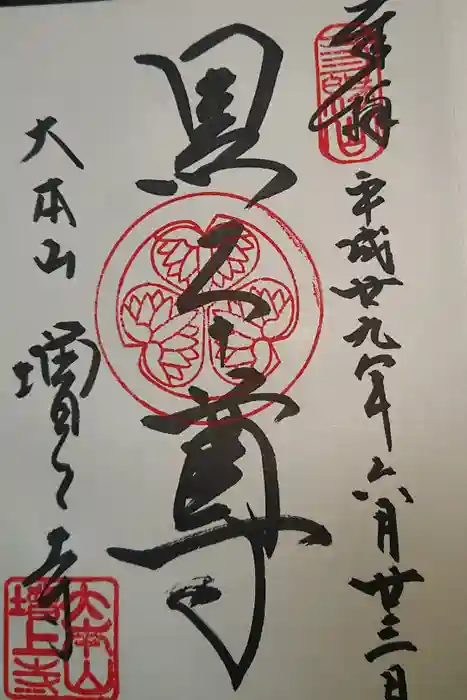 奉拝
平成廿九年六月廿三日
黒本尊
大本山 増上寺
大本山
増上寺